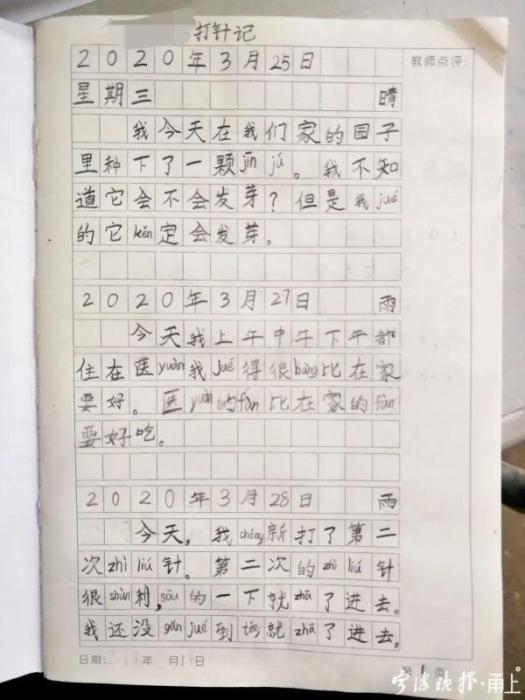 打针记
2020年3月25日
教师点评:
星期三 晴
我今天在我们家的园子
里种下了一颗jīn jú。我不知
道它会不会发芽?但是我jué
的它kěn定会发芽。
2020年3月27日 雨
今天我上午中午下午都
住在医yuàn我jué得很bàng比在家
要好。医yuàn的fàn比在家的fàn
要好吃。
2020年3月28日 雨
今天,我chóng新打了第二
次zhì liú针。第二次的zhì liú针
很shùn利,sōu的一下就zhā了进去。
我还没gǎn jué到téng就zhā了进去。
日期: 年 月 日
第1页
宁波晚报·甬上